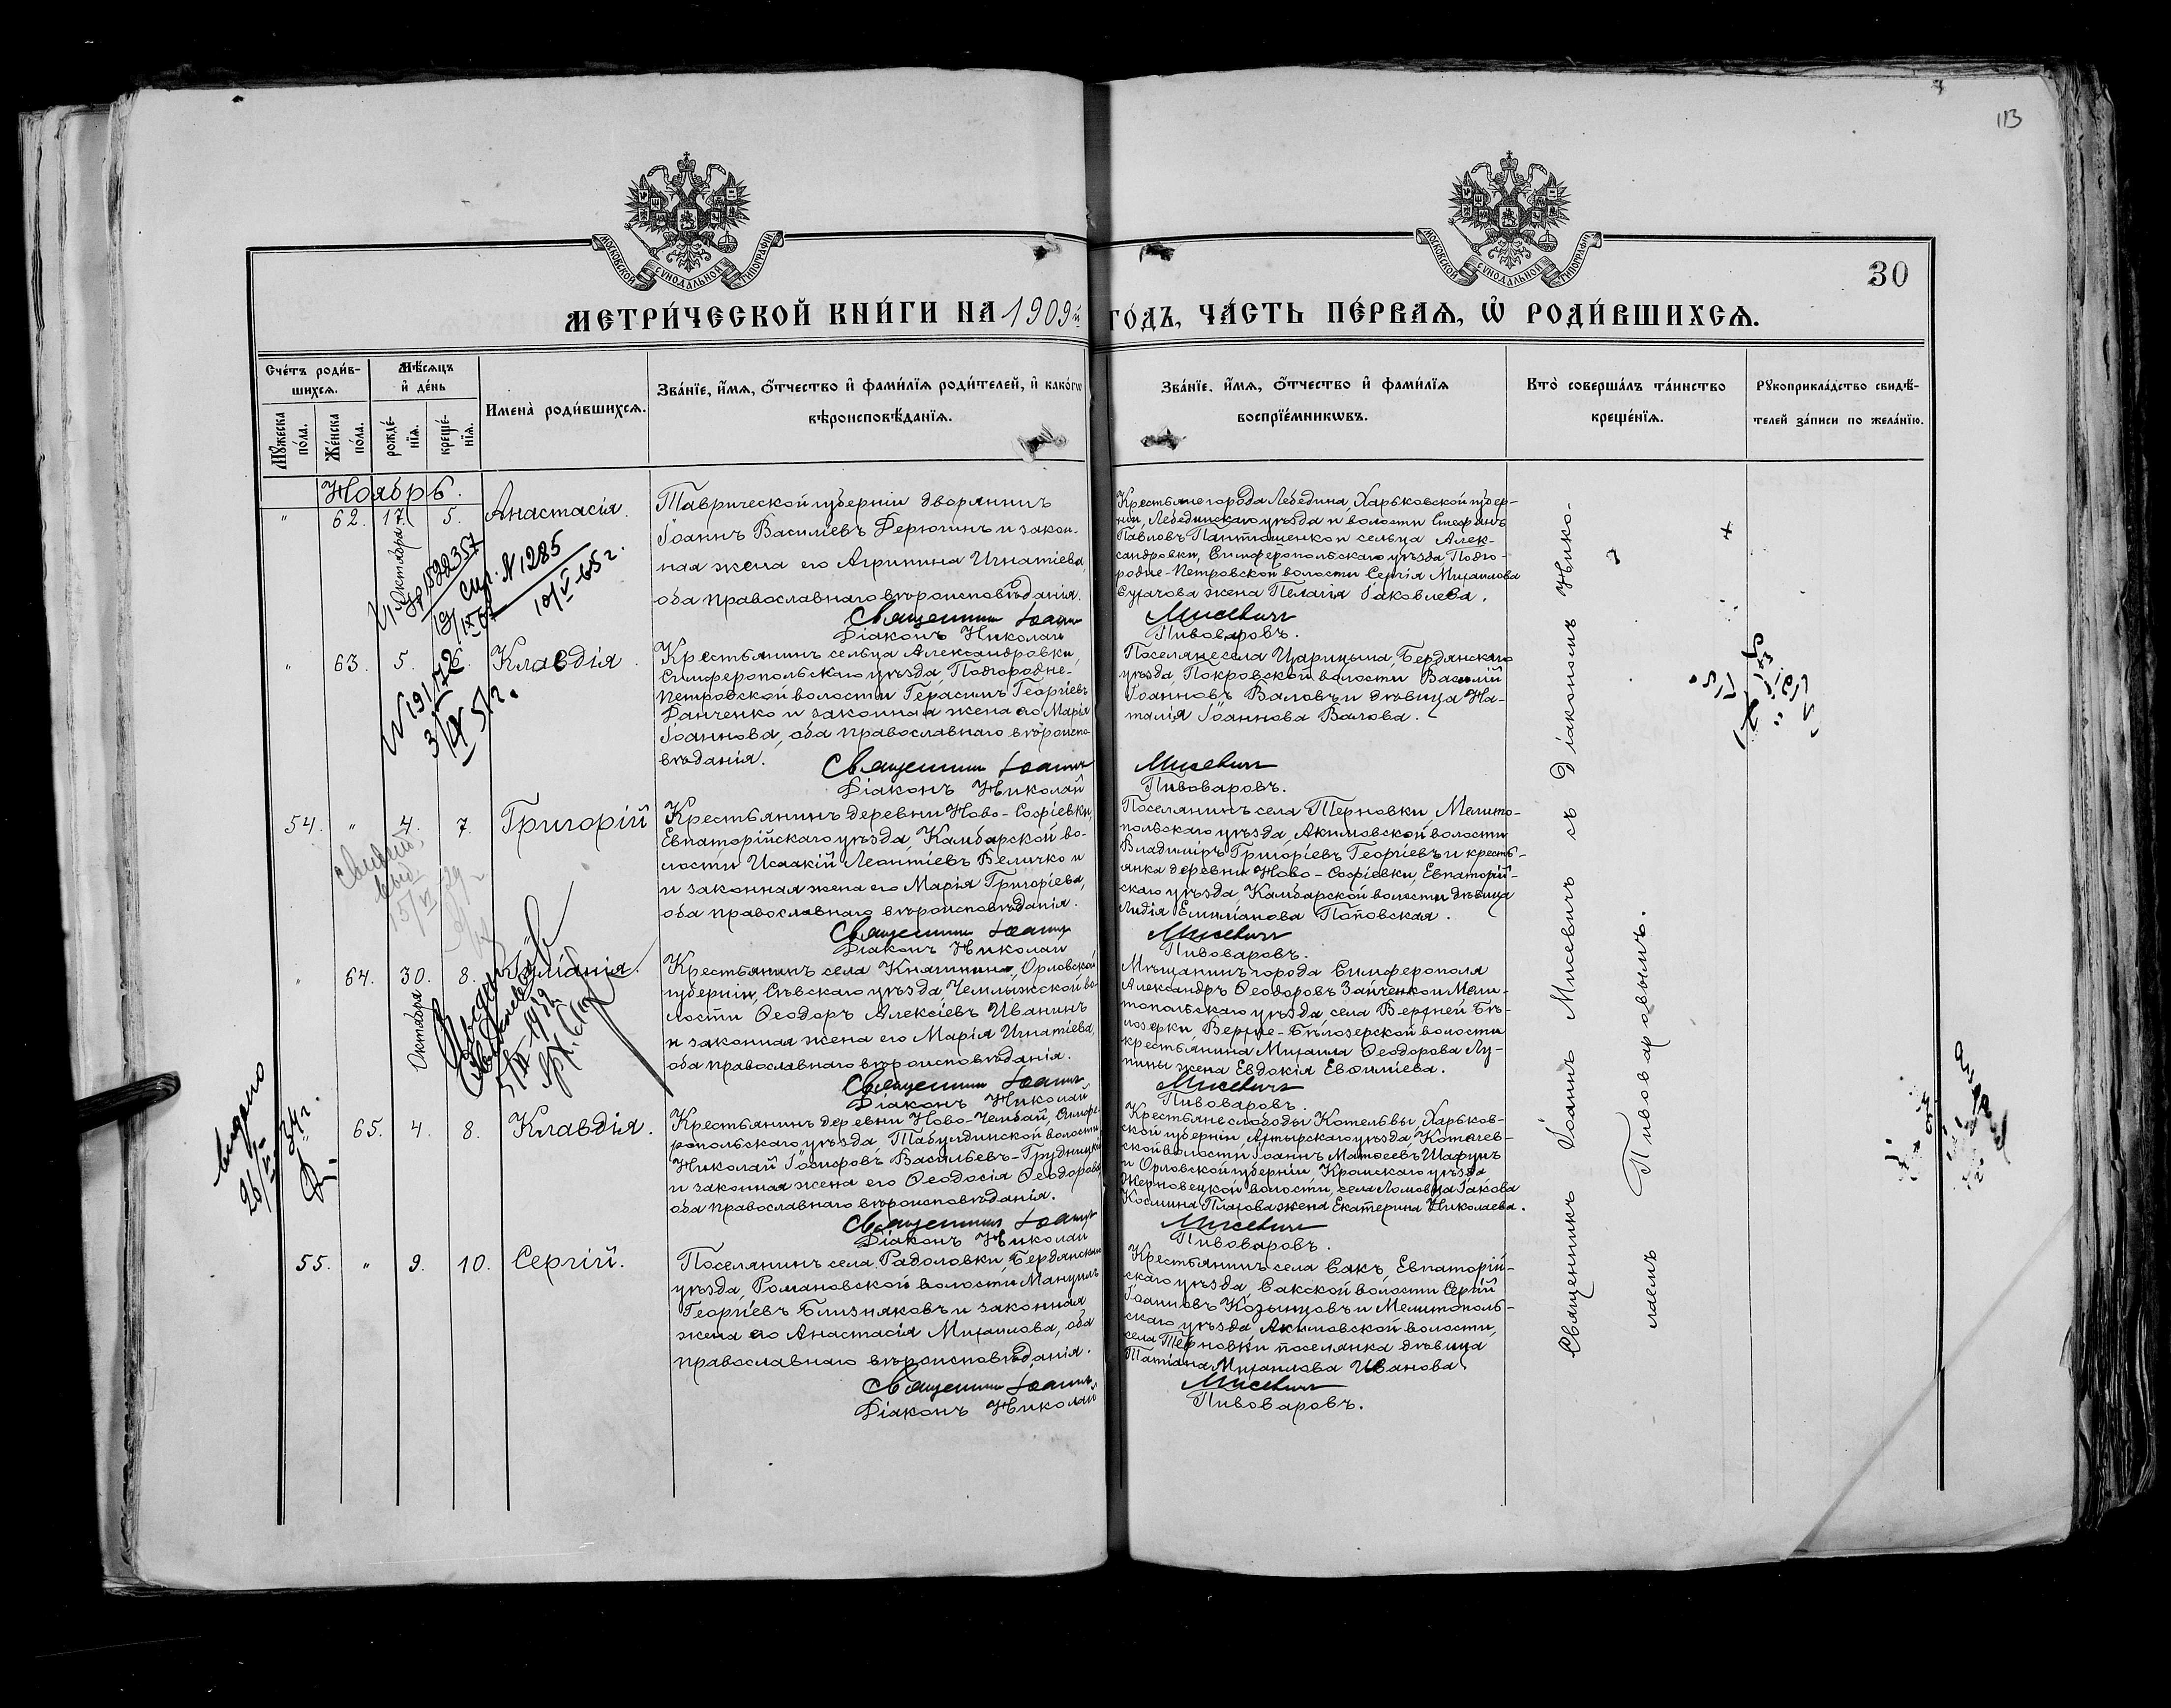 113
МОСКОВСКОЙ СѴНОДАЛЬНОЙ ТИПОГРАФІИ
МОСКОВСКОЙ СѴНОДАЛЬНОЙ ТИПОГРАФІИ
30
МЕТРИ́ЧЕСКОЙ КНИ́ГИ НА 1909й ГО́ДЪ, ЧА́СТЬ ПЕ́РВАѦ, Ѡ҆ РОДИ́ВШИХСѦ.
Сче́тъ роди́в-
шихсѧ.
Мѹ́жеска по́ла.
Же́нска по́ла.
Мѣ́сѧцъ
и҆ де́нь
рожде́-
нїѧ.
креще́-
нїѧ.
Имена̀ роди́вшихсѧ.
Зва́нїе, и҆́мѧ, ѻ҆́тчество и҆ фами́лїѧ роди́телей, и҆ како́гѡ
вѣроисповѣ́данїѧ.
Зва́нїе, и҆́мѧ, ѻ҆́тчество и҆ фами́лїѧ
воспрїе́мникѡвъ.
Кто̀ соверша́лъ та́инство
креще́нїѧ.
Рꙋкоприкла́дство свидѣ́-
телей за́писи по жела́нїю.
Ноябрь.
" 62. 17. Октября 5. Анастасія.
Таврической губерніи дворянинъ
Іоаннъ Васильевъ Дерюгинъ и закон-
ная жена его Агрипина Игнатіева,
оба православнаго вѣроисповѣданія.
Священникъ Іоаннъ Мисевичъ
Діаконъ Николай Пивоваровъ.
Крестьяне города Лебедина, Харьковской губер-
ніи, Лебединскаго уѣзда и волости Стефанъ
Павловъ Пантюшенко и сельца Алек-
сандровки, Симферопольскаго уѣзда, Подго-
родне-Петровской волости Сергія Михаилова
Сугачова жена Пелагія Іаковлева.
№ 1285
10/V-65 г.
" 63. 5. 6. Клавдія.
Крестьянинъ сельца Александровки,
Симферопольскаго уѣзда, Подгородне-
Петровской волости Герасимъ Георгіевъ
Данченко и законная жена его Марія
Іоаннова, оба православнаго вѣроиспо-
вѣданія.
Священникъ Іоаннъ Мисевичъ
Діаконъ Николай Пивоваровъ.
Поселяне села Царицына, Бердянскаго
уѣзда, Покровской волости Василій
Іоанновъ Валовъ и дѣвица На-
талія Іоаннова Валова.
54. " 4. 7. Григорій
Крестьянинъ деревни Ново-Софіевки,
Евпаторійскаго уѣзда, Камбарской во-
лости Исаакій Леонтіевъ Величко и
и законная жена его Марія Григоріева,
оба православнаго вѣроисповѣданія.
Священникъ Іоаннъ Мисевичъ
Діаконъ Николай Пивоваровъ.
Поселянинъ села Терновки, Мелито-
польскаго уѣзда, Акимовской волости
Владиміръ Григоріевъ Георгіевъ и кресть-
янка деревни Ново-Софіевки, Евпаторій-
скаго уѣзда, Камбарской волости дѣвица
Лидія Емиліанова Поповская.
" 64. 30. Октября 8.
Крестьянинъ села Княгинина, Орловской
губерніи, Сѣвскаго уѣзда, Чемлыжской во-
лости Ѳеодоръ Алексіевъ Иванинъ
и законная жена его Марія Игнатіева,
оба православнаго вѣроисповѣданія.
Священникъ Іоаннъ Мисевичъ
Діаконъ Николай Пивоваровъ.
Мѣщанинъ города Симферополя
Александръ Ѳеодоровъ Зайченко и Мели-
топольскаго уѣзда, села Верхней Бѣ-
лозерки Верхне-Бѣлозерской волости
крестьянина Михаила Ѳеодорова Лу-
пины жена Евдокія Евѳиміева.
выдано
" 65. 4. 8. Клавдія.
Крестьянинъ деревни Ново-Чембай, Симфе-
ропольскаго уѣзда, Табулдинской волости
Николай Іосифовъ Васильевъ-Грудницкій
и законная жена его Ѳеодосія Ѳеодорова,
оба православнаго вѣроисповѣданія.
Священникъ Іоаннъ Мисевичъ
Діаконъ Николай Пивоваровъ.
Крестьяне слободы Котельвы, Харьков-
ской губерніи, Ахтырскаго уѣзда, Котелев-
ской волости Іоаннъ Матѳеевъ Шафунъ
и Орловской губерніи, Кромскаго уѣзда
Жерновецкой волости, села Ломовца Іакова
Космина Плахова жена Екатерина Николаева.
55. " 9. 10. Сергій.
Поселянинъ села Радоловки, Бердянскаго
уѣзда, Романовской волости Мануилъ
Георгіевъ Близняковъ и законная
жена его Анастасія Михаилова, оба
православнаго вѣроисповѣданія.
Священникъ Іоаннъ Мисевичъ
Діаконъ Николай Пивоваровъ.
Крестьянинъ села Сакъ, Евпаторій-
скаго уѣзда, Сакской волости Сергій
Іоанновъ Козынцовъ и Мелитополь-
скаго уѣзда, Акимовской волости,
села Терновки поселянка дѣвица
Татіана Михаилова Иванова.
Священникъ Іоаннъ Мисевичъ съ Діакономъ Нико-
лаемъ Пивоваровымъ.